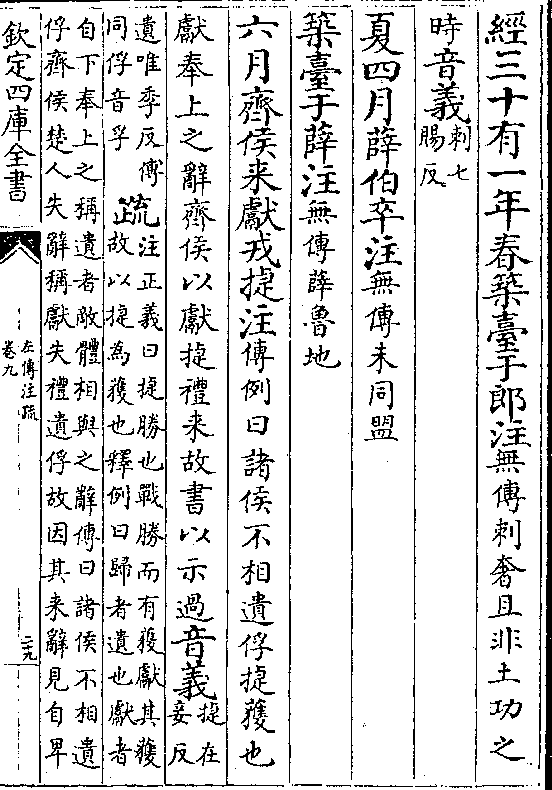 經三十有一年春築臺于郎注無傳刺奢且非土功之
時音義刺七
賜反
夏四月薛伯卒注無傳未同盟
築臺于薛注無傳薛魯地
六月齊侯來獻戎捷注傳例曰諸侯不相遺俘捷獲也
獻奉上之辭齊侯以獻捷禮来故書以示過音義捷在
妾反
遺唯季反傳
同俘音孚
疏注正義曰捷勝也戰勝而有獲獻其獲
故以捷為獲也釋例曰歸者遺也獻者
自下奉上之稱遺者敵體相與之辭傳曰諸侯不相遺
俘齊侯楚人失辭稱獻失禮遺俘故因其来辭見自卑
欽定四庫全書
左傳注疏
卷九
二九